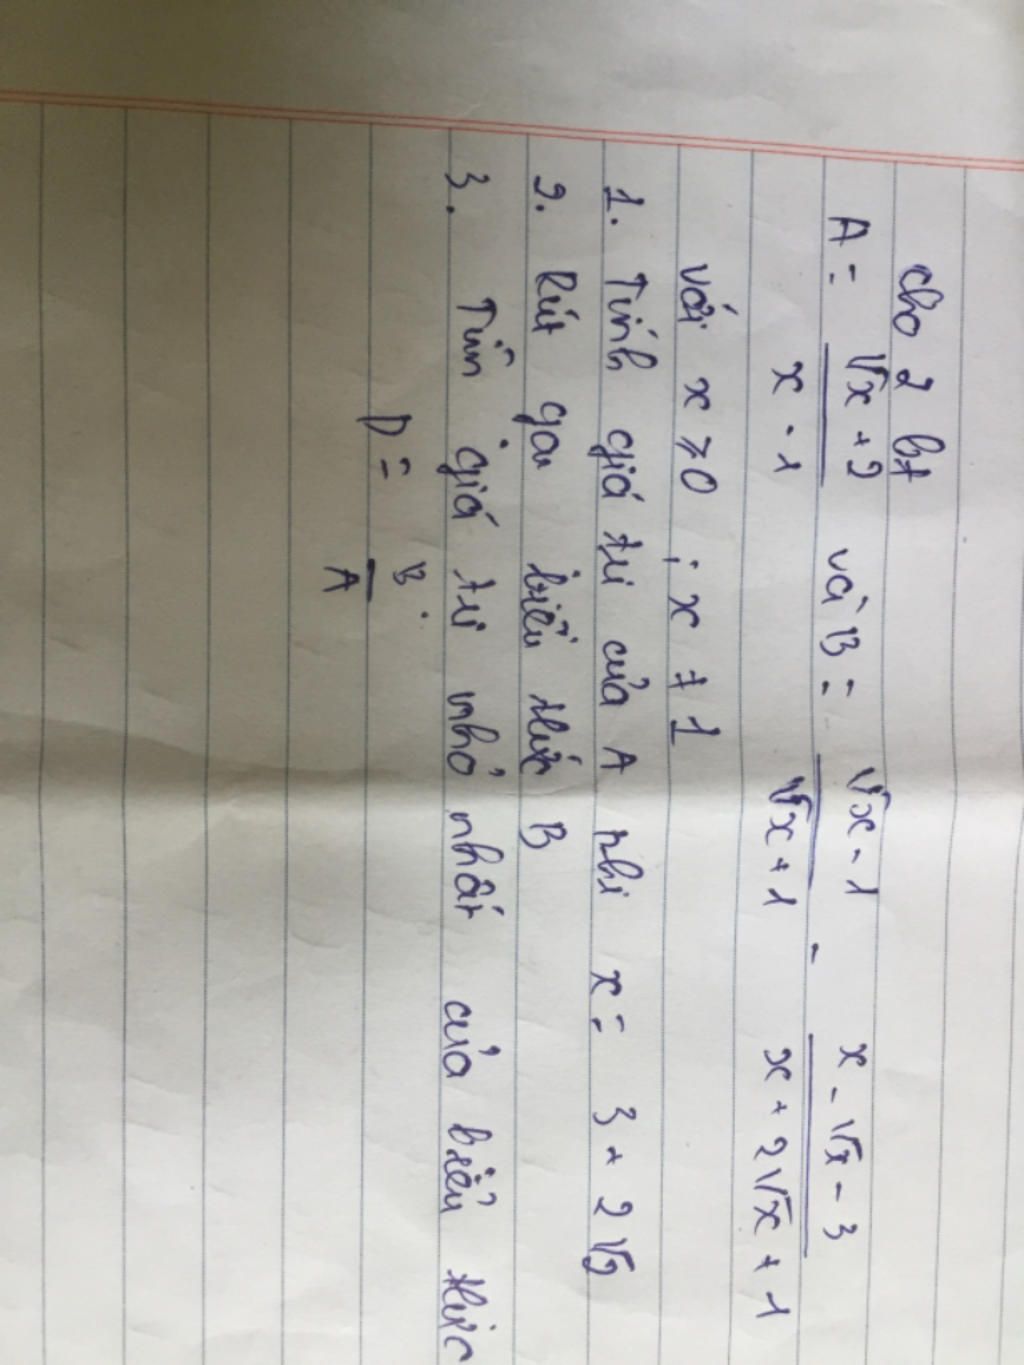 cho 2 bt
A = (√x + 2)/(x - 1) và B = (√x - 1)/(√x + 1) - (x - √x - 3)/(x + 2√x + 1)
với x ≥ 0 ; x ≠ 1
1. Tính giá trị của A khi x = 3 + 2√2
2. Rút gọn biểu thức B
3. Tìm giá trị nhỏ nhất của biểu thức
P = B/A.